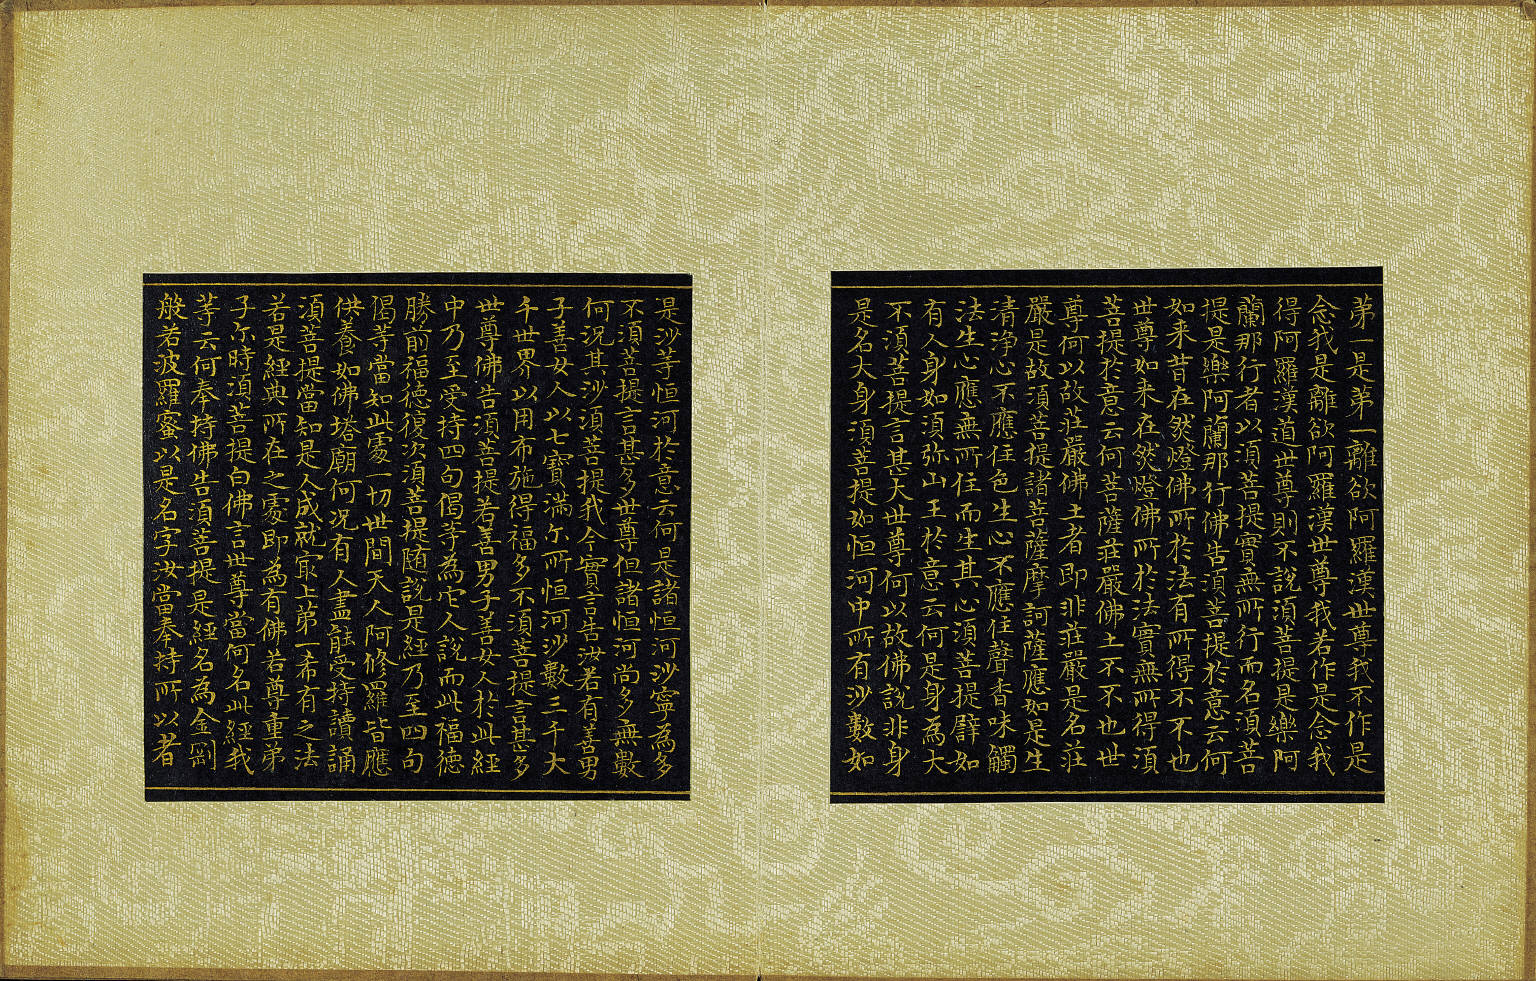 第一是第一離欲阿羅漢世尊我不作是
念我是離欲阿羅漢世尊我若作是念我
得阿羅漢道世尊則不說須菩提是樂阿
蘭那行者以須菩提實無所行而名須菩
提是樂阿蘭那行佛告須菩提於意云何
如来昔在然燈佛所於法有所得不不也
世尊如来在然燈佛所於法實無所得須
菩提於意云何菩薩莊嚴佛土不不也世
尊何以故莊嚴佛土者即非莊嚴是名莊
嚴是故須菩提諸菩薩摩訶薩應如是生
清淨心不應住色生心不應住聲香味觸
法生心應無所住而生其心須菩提譬如
有人身如須弥山王於意云何是身為大
不須菩提言甚大世尊何以故佛說非身
是名大身須菩提如恒河中所有沙數如
是沙等恒河於意云何是諸恒河沙寧為多
不須菩提言甚多世尊但諸恒河尚多無數
何況其沙須菩提我今實言告汝若有善男
子善女人以七寶滿尔所恒河沙數三千大
千世界以用布施得福多不須菩提言甚多
世尊佛告須菩提若善男子善女人於此經
中乃至受持四句偈等為它人說而此福德
勝前福德復次須菩提随說是經乃至四句
偈等當知此處一切世間天人阿修羅皆應
供養如佛塔廟何況有人盡能受持讀誦
須菩提當知是人成就冣上第一希有之法
若是經典所在之處即為有佛若尊重弟
子尔時須菩提白佛言世尊當何名此經我
等云何奉持佛告須菩提是經名為金剛
般若波羅蜜以是名字汝當奉持所以者